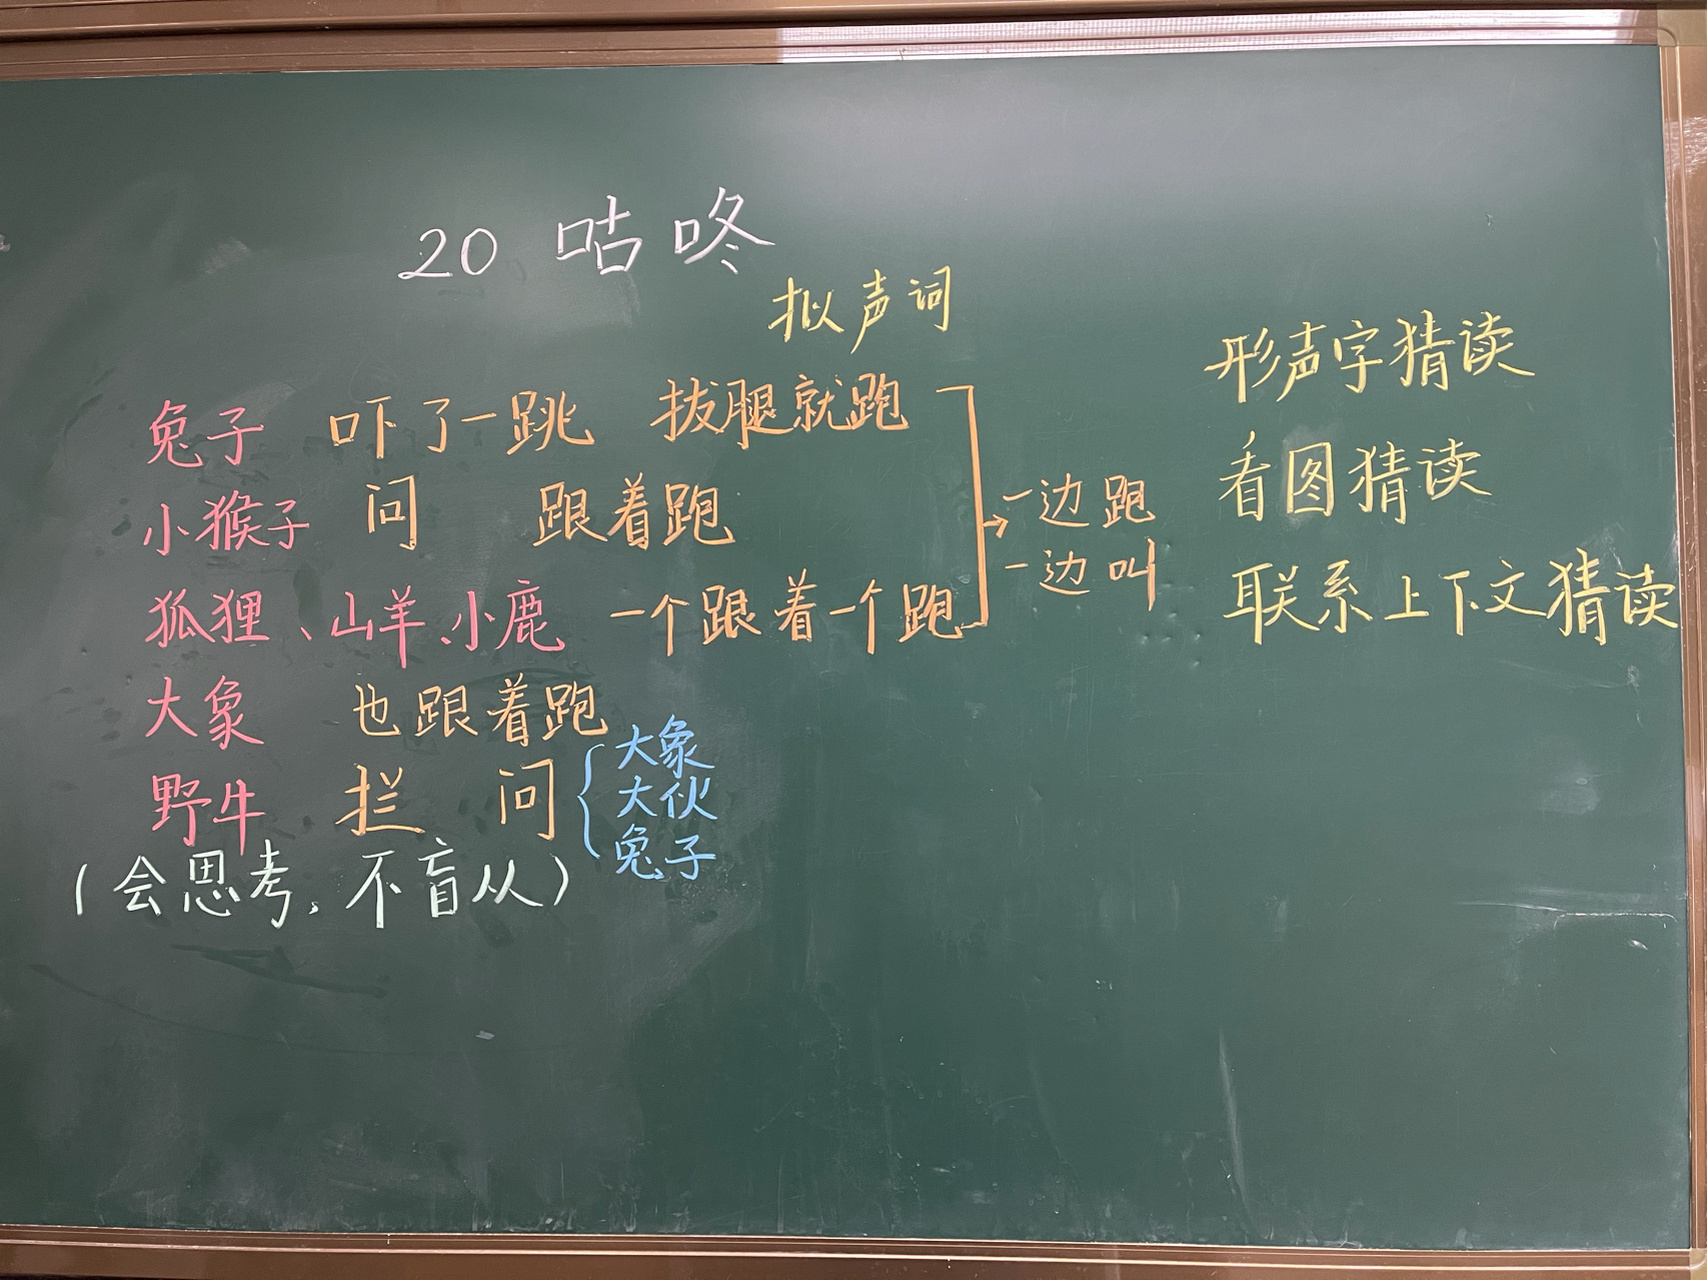 20 咕咚
拟声词
兔子 吓了一跳 拔腿就跑
小猴子 问 跟着跑
狐狸、山羊、小鹿 一个跟着一个跑
一边跑
一边叫
大象 也跟着跑
野牛 拦 问
大象
大伙
兔子
(会思考,不盲从)
形声字猜读
看图猜读
联系上下文猜读